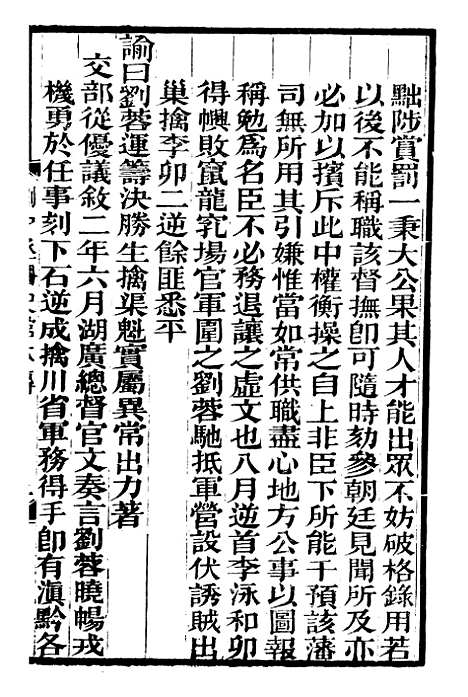 黜陟賞罰一秉大公果其人才能出眾不妨破格錄用若
以後不能稱職該督撫卽可隨時劾參朝廷見聞所及亦
必加以擯斥此中權衡操之自上非臣下所能干預該藩
司無所用其引嫌惟當如常供職盡心地方公事以圖報
稱勉爲名臣不必務退讓之虛文也八月逆首李泳和卯
得興敗竄龍究場官軍圍之劉蓉馳抵軍營設伏誘賊出
巢擒李卯二逆餘匪悉平
諭曰劉蓉運籌決勝生擒渠魁實屬異常出力著
交部從優議敘二年六月湖廣總督官文奏言劉蓉曉暢戎
機勇於任事刻下石逆成擒川省軍務得手卽有滇黔各